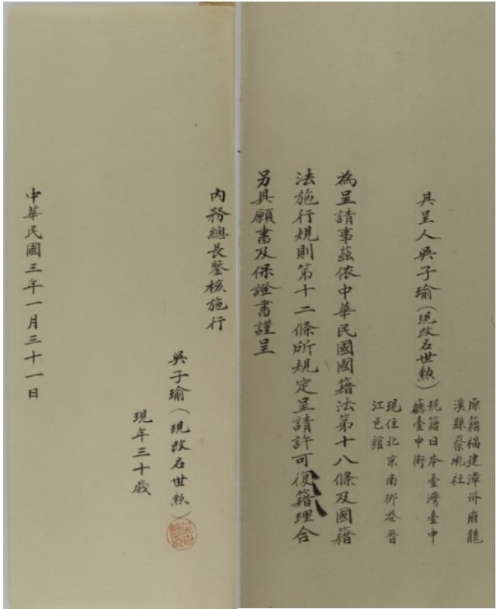 具呈人吳子瑜（現改名世勲）
原籍福建漳州府龍
溪縣蔡社
現籍日本臺灣臺中
廳臺中街
現住北京南柳巷晉
江邑館
為呈請事茲依中華民國國籍法第十八條及國籍
法施行規則第十二條所規定呈請許可復籍理合
另具願書及保證書謹呈
內務總長鑒核施行
吳子瑜（現改名世勲）
現年三十歲
中華民國三年一月三十一日